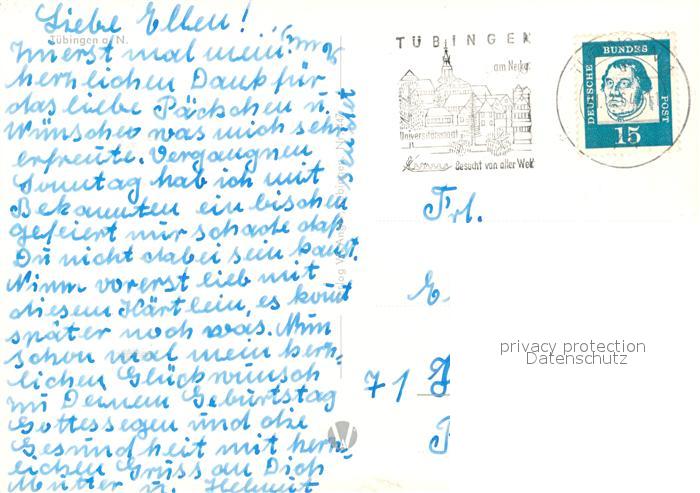 Liebe Ellen!
Tübingen a. N.
Zuerst mal mein
herzlichen Dank für
das liebe Päckchen u.
Wünschen was mich sehr
erfreute. Vergangnen
Sonntag hab ich mit
Bekannten ein bischen
gefeiert nur schade daß
Du nicht dabei sein kannst.
Nimm vorerst lieb mit
diesem Kärtlein, es komt
später noch was. Nun
schon mal mein herz-
lichen Glückwunsch
zu Deinem Geburtstag
Gottessegen und die
Gesundheit mit herz-
lichen Gruss an Dich
Mutter u. Helmut
TÜBINGEN
am Neckar
Universitätsstadt
Besucht von aller Welt
DEUTSCHE BUNDES POST
15
Frl.
E.
71
privacy protection
Datenschutz